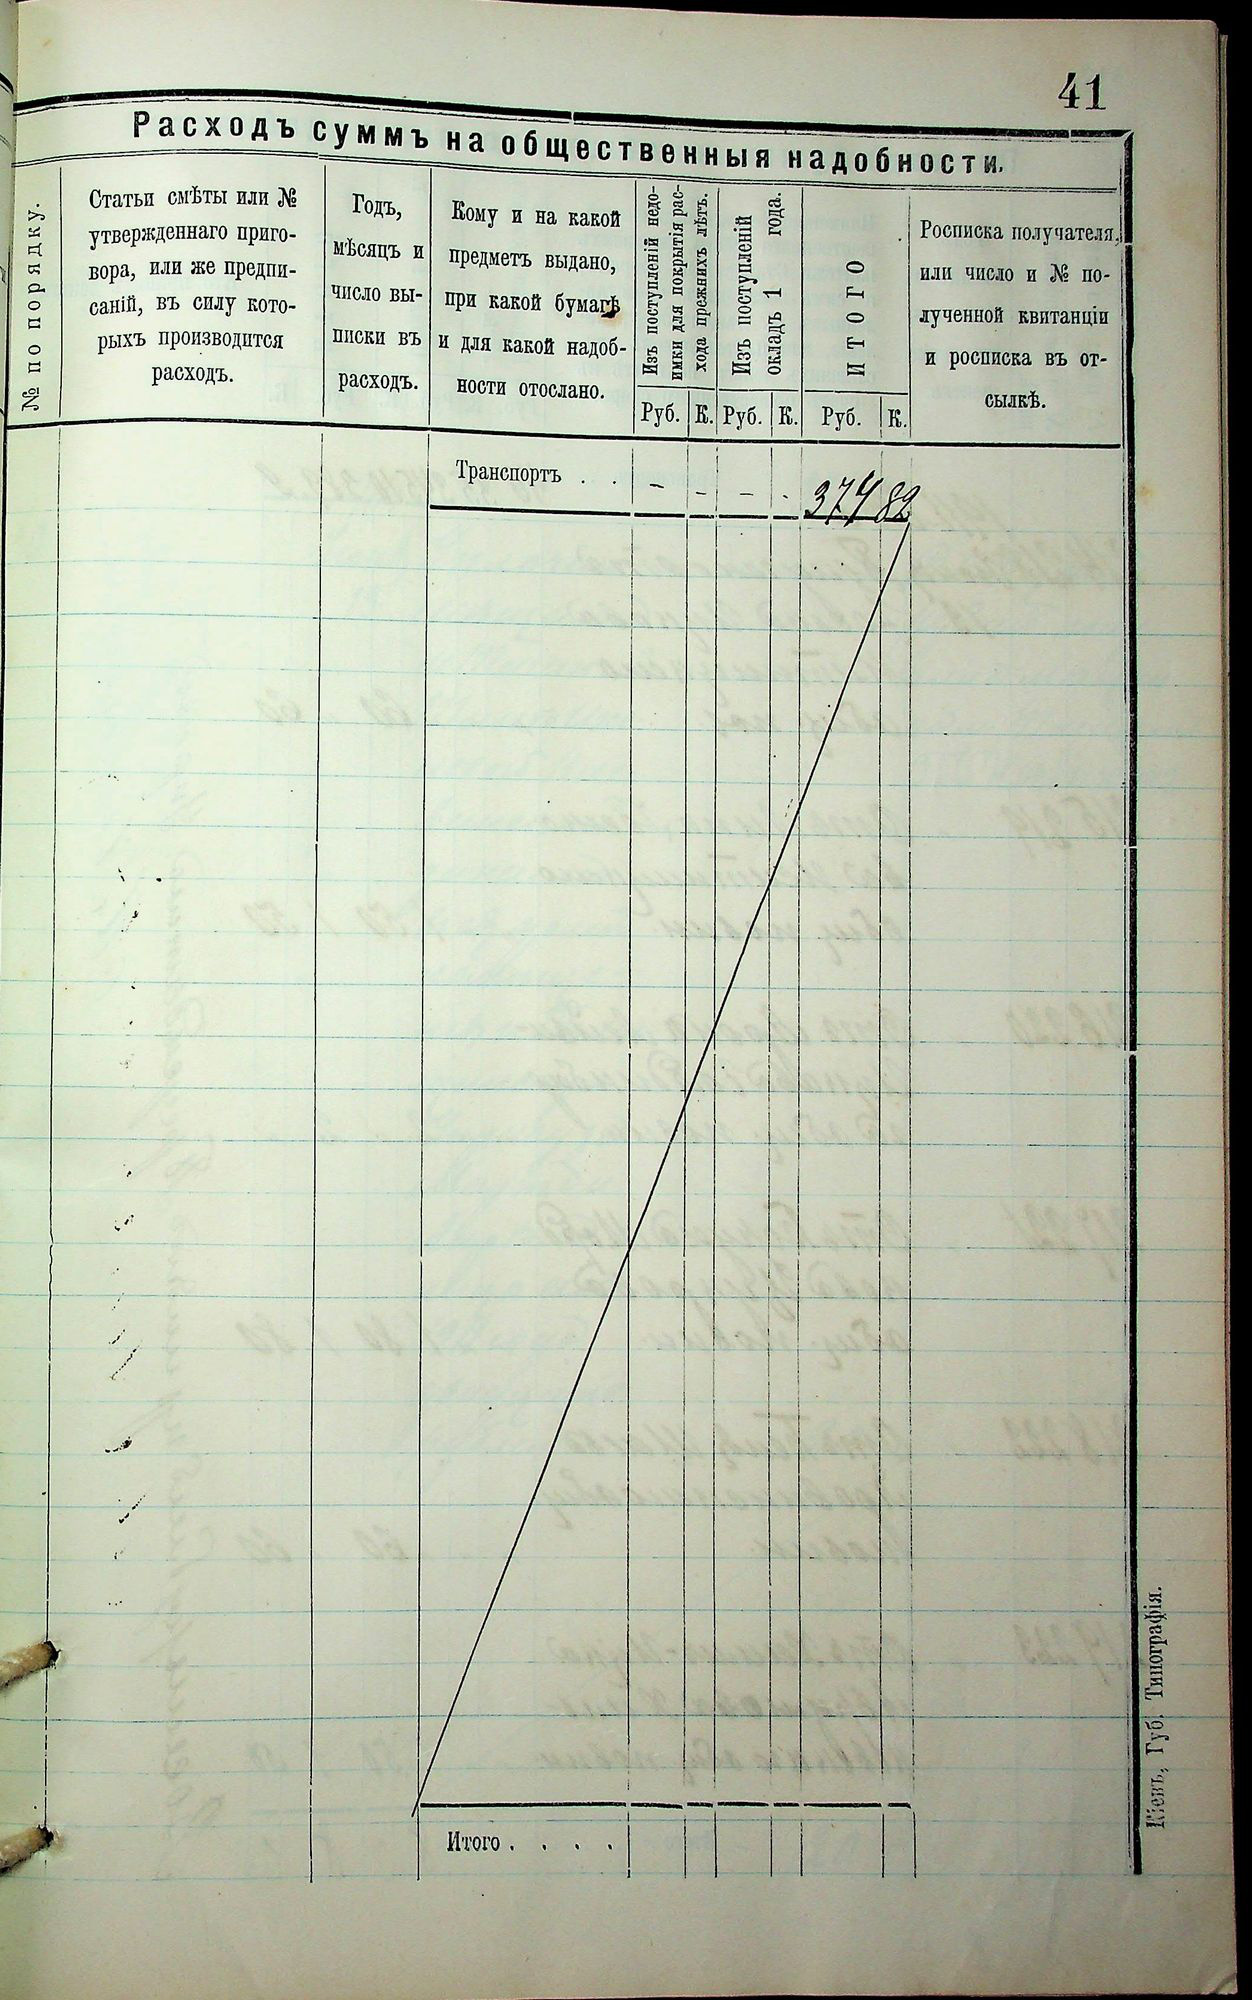 41
Расходъ суммъ на общественныя надобности.
№ по порядку.
Статьи смѣты или №
утвержденнаго приго-
вора, или же предпи-
саній, въ силу кото-
рыхъ производится
расходъ.
Годъ,
мѣсяцъ и
число вы-
писки въ
расходъ.
Кому и на какой
предметъ выдано,
при какой бумагѣ
и для какой надоб-
ности отослано.
Изъ поступленій недо-
имки для покрытія рас-
хода прежнихъ лѣтъ.
Руб. К.
Изъ поступленій
окладъ 1 года.
Руб. К.
ИТОГО
Руб. К.
Росписка получателя,
или число и № по-
лученной квитанціи
и росписка въ от-
сылкѣ.
Транспортъ . . – – – - 374 82
Итого . . . .
Кіевъ, Губ. Типографія.